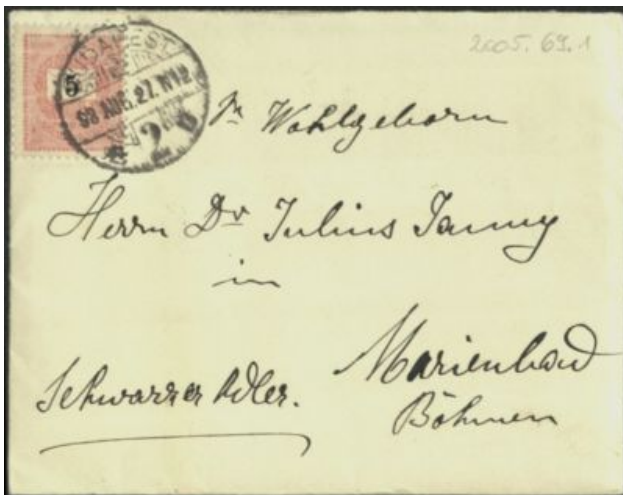 2005.69.1
5
BUDAPEST
98 AUG. 27. N12
2
Wohlgeborn
Herrn Dr Julius
in
Marienbad
Böhmen
Schwarzer Adler.